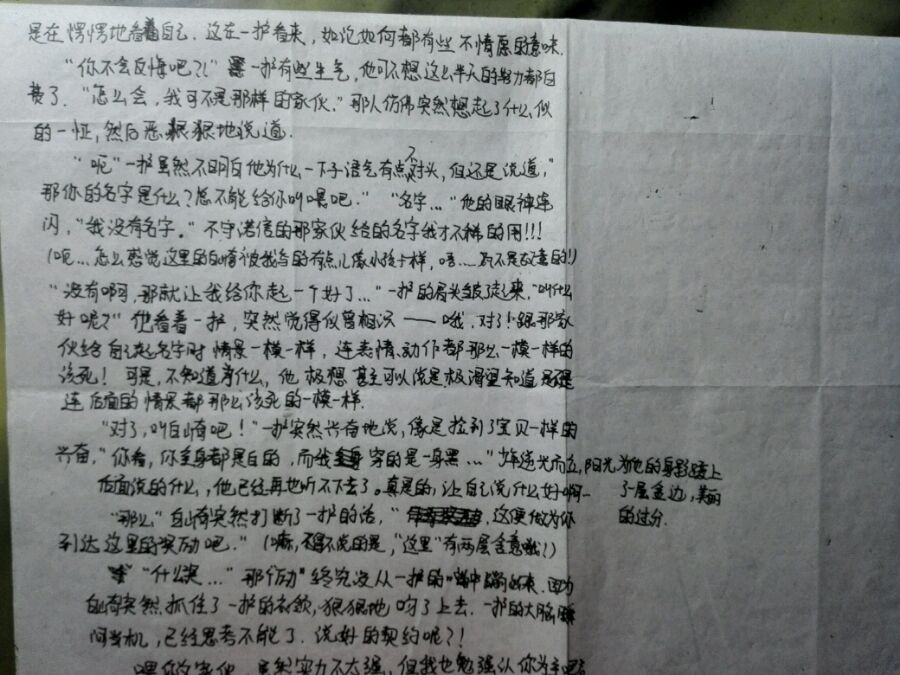 是在愣愣地看着自己. 这在一护看来, 如论如何都有些不情愿的意味.
"你不会反悔吧?!" 一护有些生气, 他可不想这么半天的努力都白
费了. "怎么会, 我可不是那样的家伙." 那人仿佛突然想起了什么似
的一怔, 然后恶狠狠地说道.
"呃"一护虽然不明白他为什么一下子语气有点不对头, 但还是说道,"
那你的名字是什么? 总不能给你叫喂吧." "名字..." 他的眼神连
闪, "我没有名字." 不守诺信的那家伙给的名字我才不稀的用!!!
(呃... 怎么感觉这里的白崎被我写的有点儿像小孩子样, 唔.... 不是故意的!)
"没有啊, 那就让我给你起一个好了..." 一护的眉头皱了起来, "叫什么
好呢?" 他看着一护, 突然觉得似曾相识 —— 哦, 对了! 跟那家
伙给自己起名字时情景一模一样, 连表情、动作都那么一模一样的
该死! 可是, 不知道为什么, 他极想甚至可以说是极渴望知道是不是
连后面的情景都那么该死的一模一样.
"对了, 叫白崎吧!" 一护突然兴奋地说, 像是捡到了宝贝一样的
兴奋, "你看, 你全身都是白的, 而我穿的是一身黑..." 少年逆光而立, 阳光为他的身影踱上
了一层金边, 美丽
的过分.
后面说的什么, 他已经再也听不下去了. 真是的, 让自己说什么好啊..
"那么" 白崎突然打断了一护的话, " 这便做为你
到达这里的奖励吧." (嘛, 不得不说的是, "这里"有两层含意哦!)
"什么奖..." 那个"励" 终究没从一护的嘴中蹦出来. 因为
白崎突然抓住了一护的衣领, 狠狠地吻了上去. 一护的大脑瞬
间当机, 已经思考不能了. 说好的契约呢?!
虽然实力不太强, 但我也勉强认你为主吧